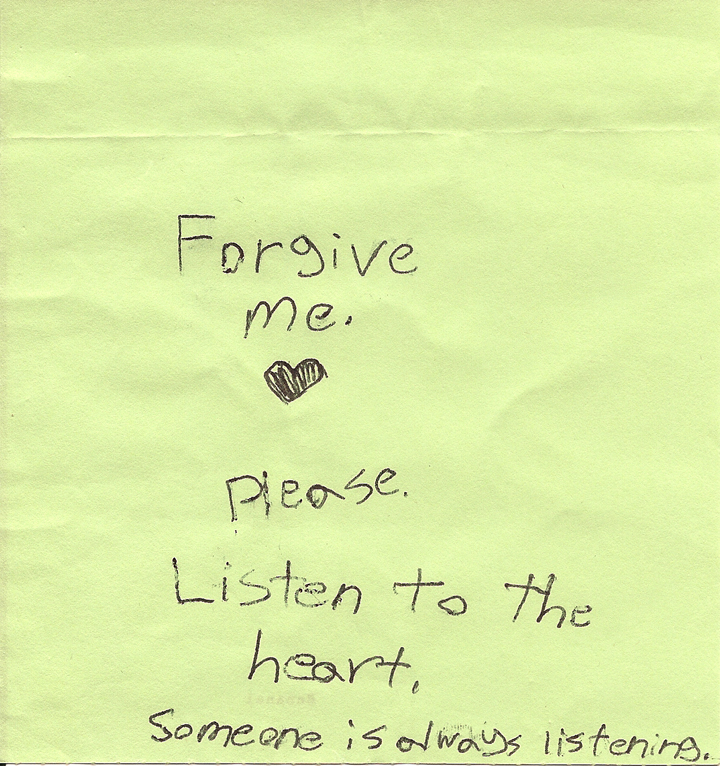 Forgive
me.
please.
Listen to the
heart.
Someone is always listening.